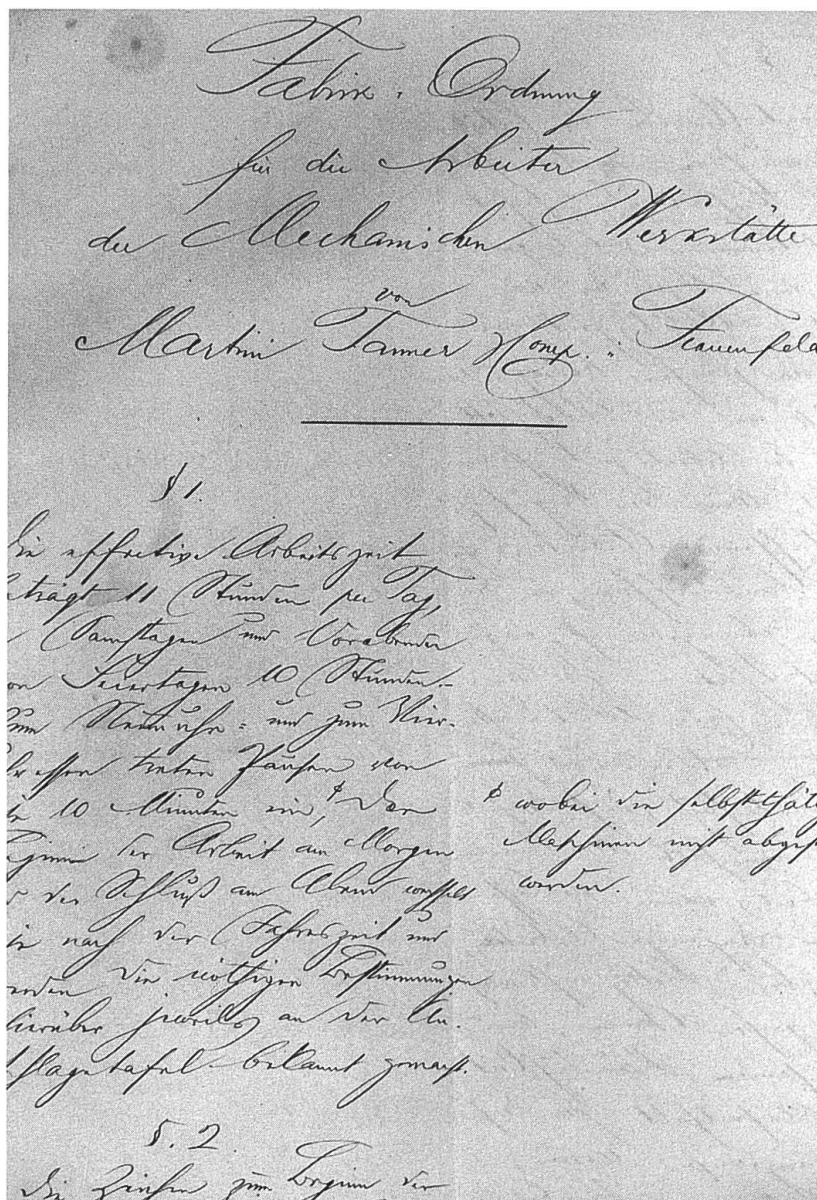 Fabrik-Ordnung
für die Arbeiter
der Mechanischen Werkstätte
von
Martin Tanner Comp. in Frauenfeld
§ 1.
Die effective Arbeitszeit
beträgt 11 Stunden per Tag,
Samstagen und Vorabenden
von Feiertagen 10 Stunden.-
Zum Neunuhr- und zum Vier-
uhressen treten Pausen von
je 10 Minuten ein, Der
Beginn der Arbeit am Morgen
der Schluß am Abend wechselt
je nach der Jahreszeit und
werden die nöthigen Bestimmungen
hierüber jeweils an der An-
schlagetafel bekannt gemacht.
wobei die selbstthätig
Maschinen nicht abgest
werden.
§. 2.
Die Zeichen zum Beginn der